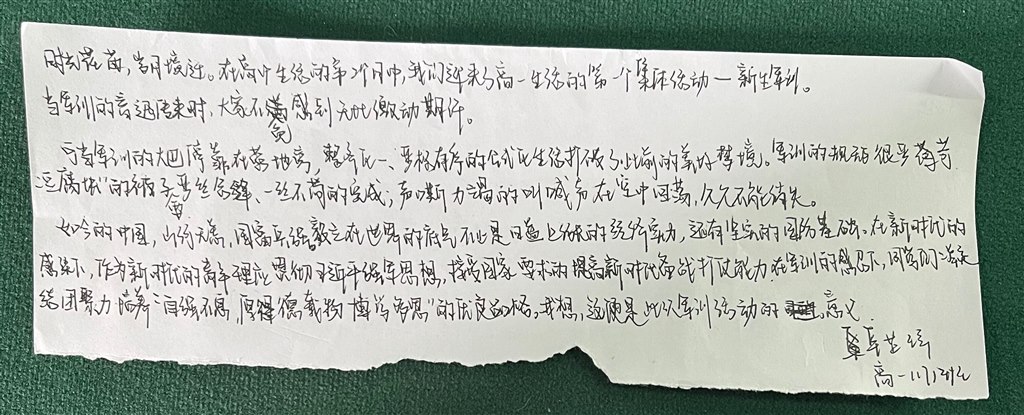 时光荏苒,岁月境迁。在高中生活的第一个月中,我们迎来了高一生活的第一个集体活动—新生军训。
当军训的音迅传来时,大家不免感到无比激动期待。
可当军训的大巴停靠在基地旁,整齐化一、严格有序的公式化生活打破了心的美好梦境。军训的规划很严苛,
豆腐块"的被子要丝丝合缝、一丝不苟的完成;声嘶力竭的叫喊声在空中回荡,久久不能消失。
如今的中国,山河无恙,国富兵强,毅立在世界的底气不止是日益上继的经济实力,还有坚实的国防基础。在新时代的
感召下,作为新时代的青年理应贯彻习近平强军思想,接受国家要求的提高新时代备战打仗能力在军训的感召下,同学们
结团聚力培养"自强不息,厚德载物 博学善思"的优良品格。我想,这便是此次军训活动的意义
高一